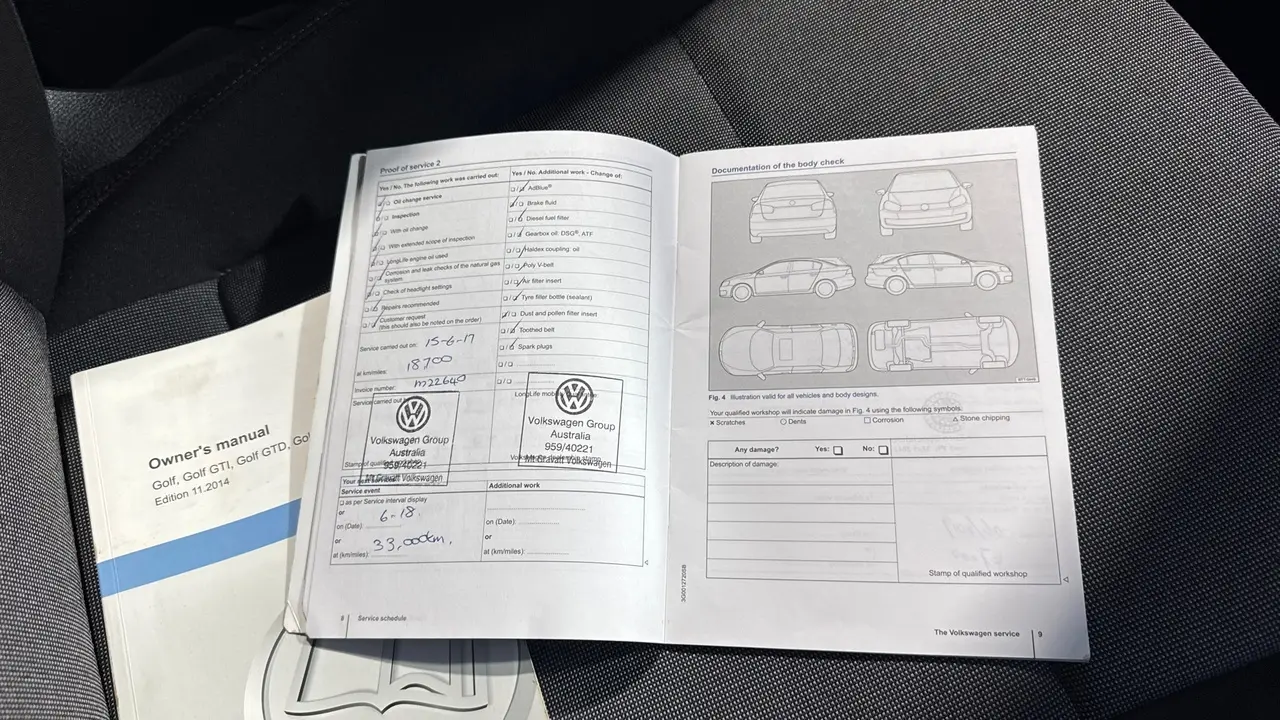 Proof of service 2
Yes / No. The following work was carried out:
Oil change service
Inspection
With oil change
With extended scope of inspection
LongLife engine oil used
Corrosion and leak checks of the natural gas
system
Check of headlight settings
Repairs recommended
Customer request
(this should also be noted on the order)
Service carried out on: 15-6-17
at km/miles: 18700
Invoice number: m22640
Service carried out
Volkswagen Group
Australia
959/40221
Mt Gravatt Volkswagen
Stamp of
Yes / No. Additional work - Change of:
AdBlue®
Brake fluid
Diesel fuel filter
Gearbox oil: DSG®, ATF
Haldex coupling: oil
Poly V-belt
Air filter insert
Tyre filler bottle (sealant)
Dust and pollen filter insert
Toothed belt
Spark plugs
LongLife
Volkswagen Group
Australia
959/40221
Mt Gravatt Volkswagen
Your next service:
Service event
as per Service interval display
or
6-18.
on (Date):
or
33,000km.
at (km/miles):
Additional work
on (Date):
or
at (km/miles):
8 Service schedule
Documentation of the body check
Fig. 4 Illustration valid for all vehicles and body designs.
Your qualified workshop will indicate damage in Fig. 4 using the following symbols.
× Scratches ○ Dents □ Corrosion △ Stone chipping
Any damage? Yes: No:
Description of damage:
Stamp of qualified workshop
3G0012720SB
The Volkswagen service 9
Owner's manual
Golf, Golf GTI, Golf GTD, Go
Edition 11.2014